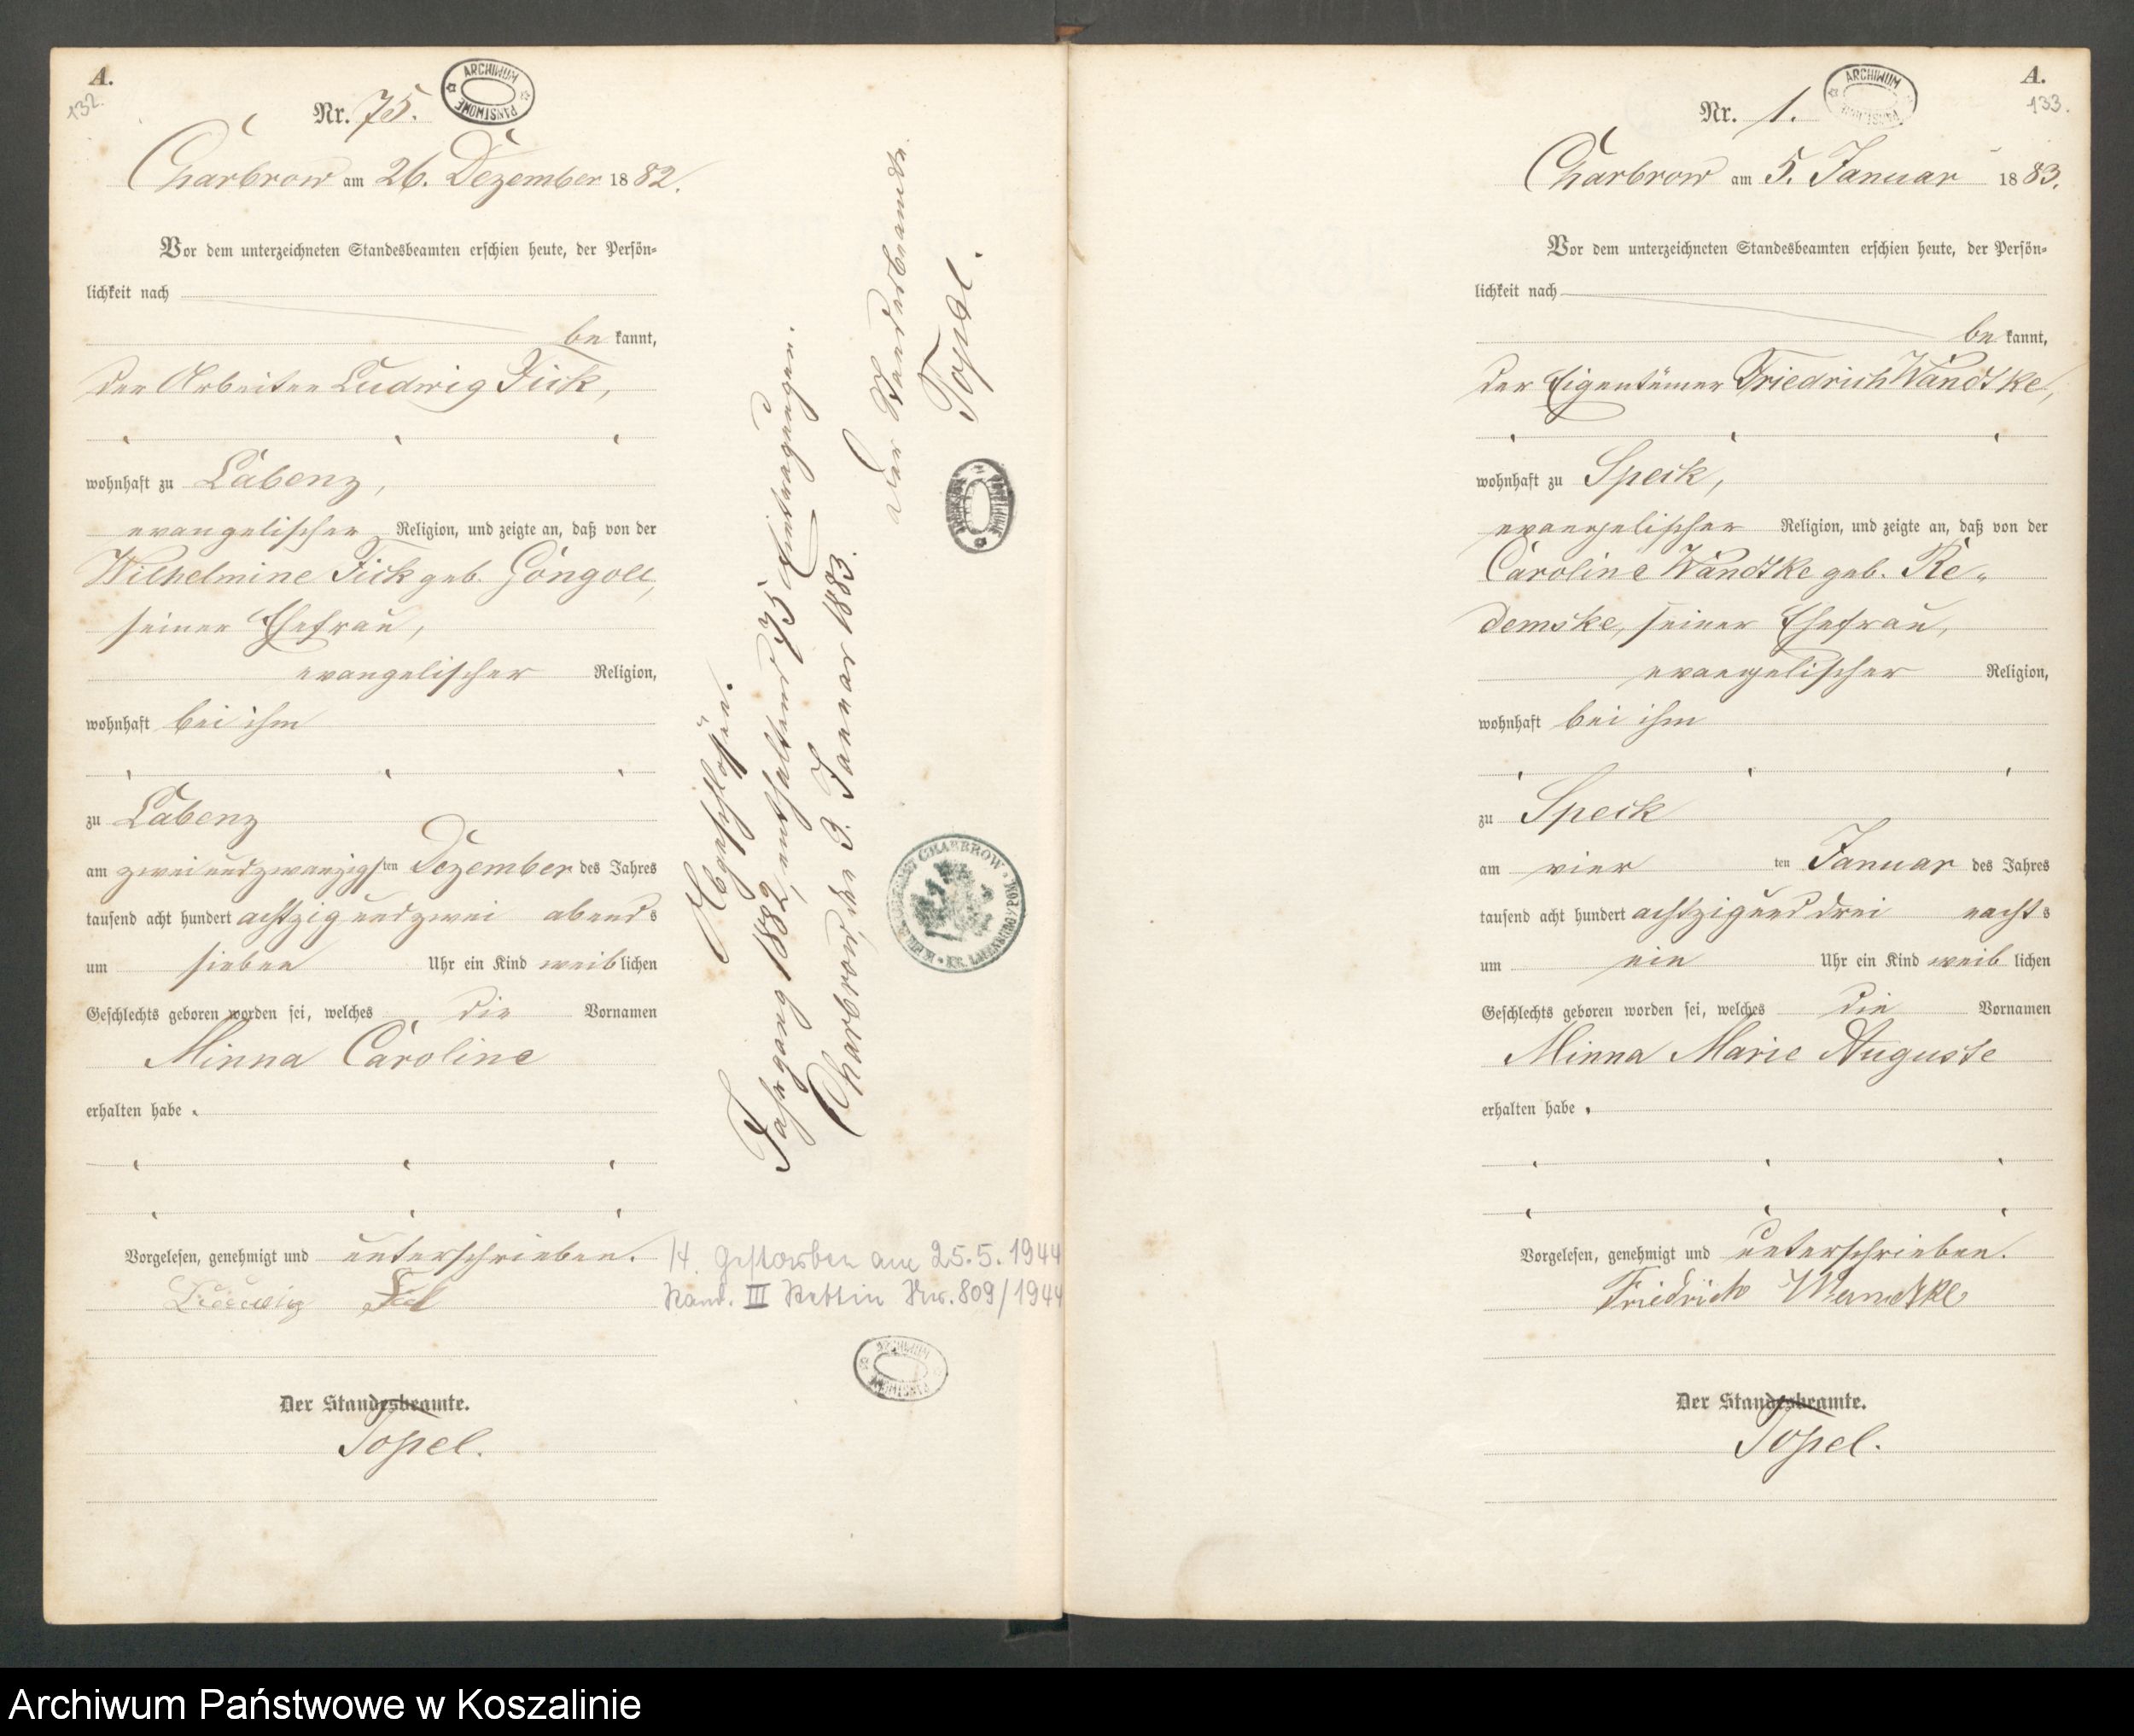 A.
132.
Nr. 75.
ARCHIWUM PAŃSTWOWE
Charbrow am 26. Dezember 1882.
Vor dem unterzeichneten Standesbeamten erschien heute, der Persön-
lichkeit nach
be kannt,
der Arbeiter Ludwig Fick,
wohnhaft zu Labenz,
evangelischer Religion, und zeigte an, daß von der
Wilhelmine Fick geb. Gongoll,
seiner Ehefrau,
evangelischer Religion,
wohnhaft bei ihm
zu Labenz
am zweiundzwanzigsten Dezember des Jahres
tausend acht hundert achtzig und zwei abends
um sieben Uhr ein Kind weiblichen
Geschlechts geboren worden sei, welches die Vornamen
Minna Caroline
erhalten habe.
Vorgelesen, genehmigt und unterschrieben.
Ludwig Fick
Der Standesbeamte.
Topel.
Abgeschlossen.
Jahrgang 1882, enthaltend 75 Eintragungen.
Charbrow, den 3. Januar 1883.
Der Standesbeamte.
Topel.
H. Gestorben am 25.5.1944
Stand. III Stettin Nr. 809/1944
A.
133.
Nr. 1.
ARCHIWUM PAŃSTWOWE
Charbrow am 5. Januar 1883.
Vor dem unterzeichneten Standesbeamten erschien heute, der Persön-
lichkeit nach
be kannt,
der Eigentümer Friedrich Wandtke,
wohnhaft zu Speck,
evangelischer Religion, und zeigte an, daß von der
Caroline Wandtke geb. Re-
demske, seiner Ehefrau,
evangelischer Religion,
wohnhaft bei ihm
zu Speck
am vier ten Januar des Jahres
tausend acht hundert achtzig und drei nachts
um ein Uhr ein Kind weib lichen
Geschlechts geboren worden sei, welches die Vornamen
Minna Marie Auguste
erhalten habe.
Vorgelesen, genehmigt und unterschrieben.
Friedrich Wandtke
Der Standesbeamte.
Topel.
Archiwum Państwowe w Koszalinie